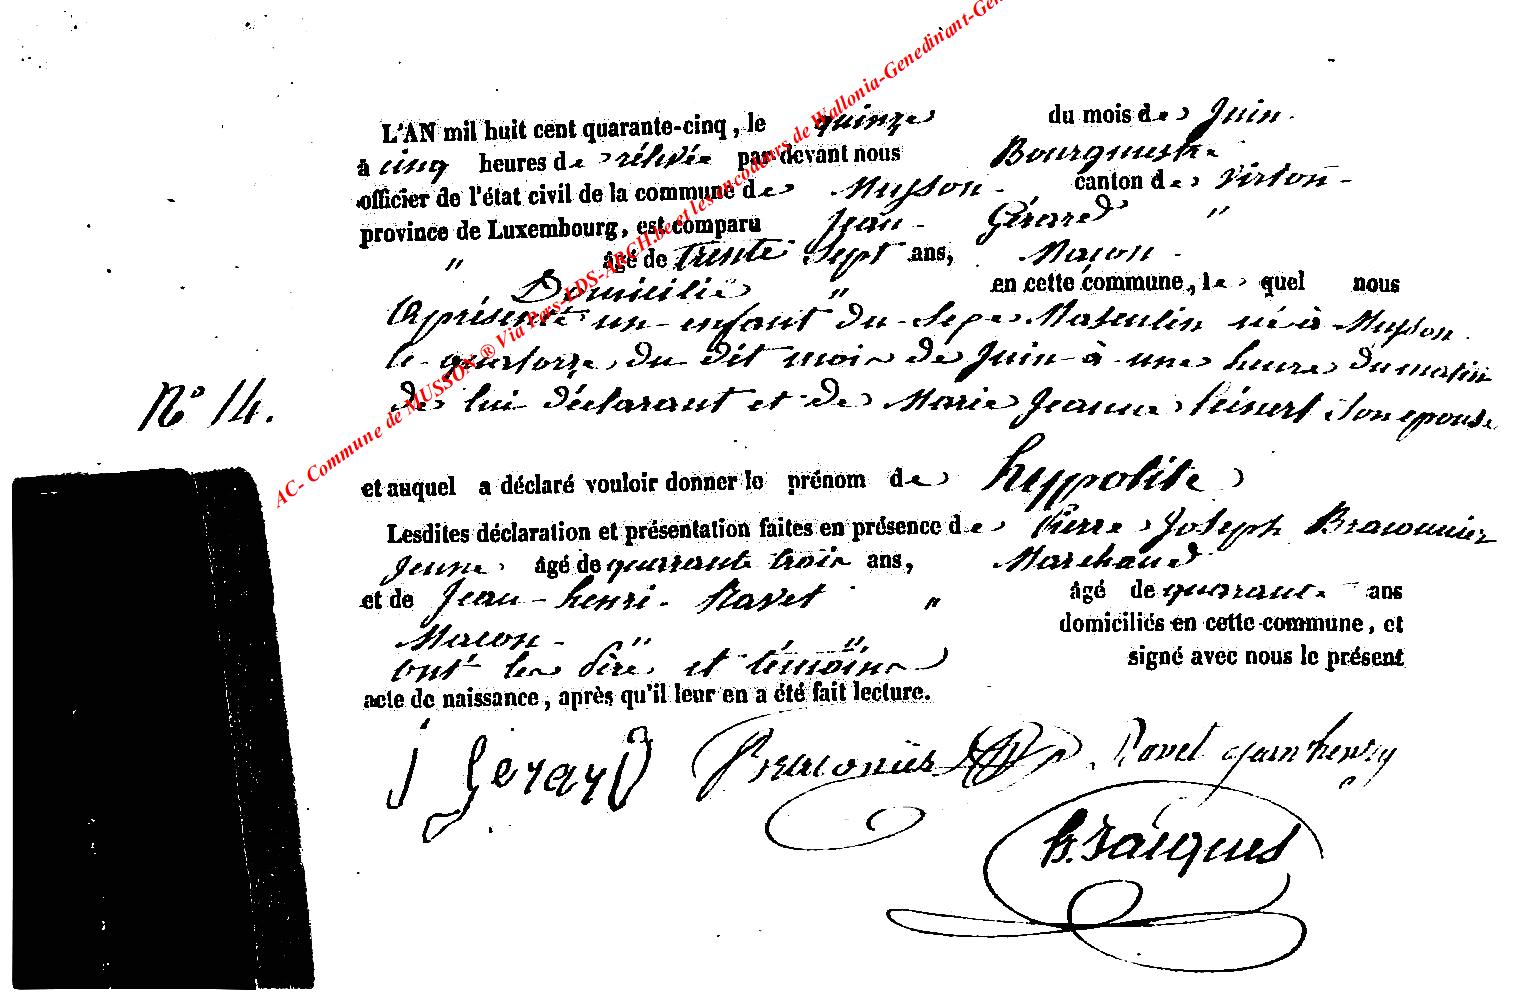 AC- Commune de MUSSON ® Via Pars-LDS-ARCH.be et les encodeurs de Wallonia-Genedinant-Gen
L'AN mil huit cent quarante-cinq, le quinze du mois de Juin.
à cinq heures de rélévée par devant nous Bourgmestre
officier de l'état civil de la commune de Musson - canton de Virton -
province de Luxembourg, est comparu Jean - Gérard "
" âgé de trente Sept ans, Macon -
Domicilié " en cette commune, le quel nous
a présenté un enfant du Sexe Masculin né à Musson
le quatorze du dit mois de Juin à une heure du matin
N° 14. de lui déclarant et de Marie Jeanne son epouse
et auquel a déclaré vouloir donner le prénom de hyppolite
Lesdites déclaration et présentation faites en présence de Pierre Joseph Braconnier
Jeune âgé de quarrante trois ans, Marchand
et de Jean - henri - Ravet " âgé de quarrante ans
Macon - domiciliés en cette commune, et
ont les père et témoins signé avec nous le présent
acte de naissance, après qu'il leur en a été fait lecture.
J Gerard Braconnier Ravet jean henry
Jacques